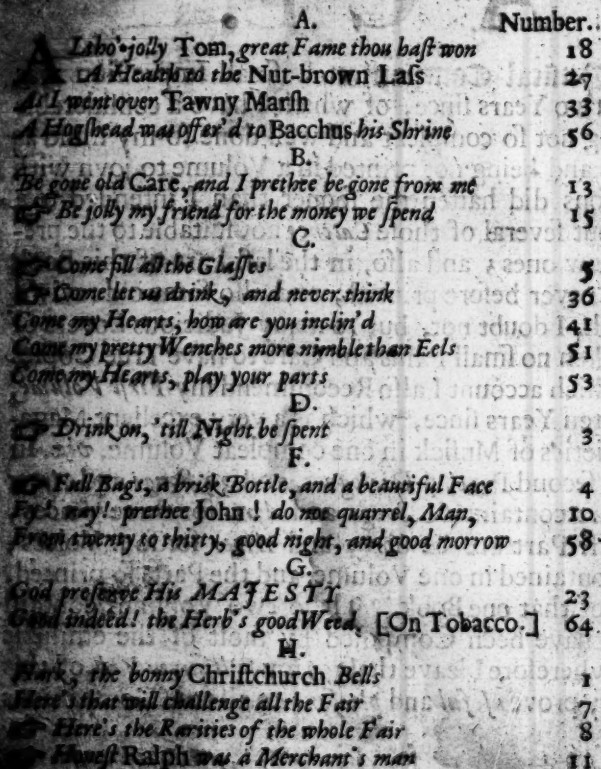 A. Number.
ALtho' jolly Tom, great Fame thou haſt won 18
☞ A Health to the Nut-brown Laſs 27
As I went over Tawny Marſh 33
A Hogſhead was offer'd to Bacchus his Shrine 56
B.
Be gone old Care, and I prethee be gone from me 13
☞ Be jolly my friend for the money we ſpend 15
C.
☞ Come fill all the Glaſſes 5
☞ Come let us drink, and never think 36
Come my Hearts, how are you inclin'd 41
Come my pretty Wenches more nimble than Eels 51
Come my Hearts, play your parts 53
D.
☞ Drink on, 'till Night be ſpent 3
F.
☞ Full Bags, a brisk Bottle, and a beautiful Face 4
Fy! nay! prethee John! do not quarrel, Man, 10
From twenty to thirty, good night, and good morrow 58
G.
God preſerve His MAJESTY 23
Good indeed! the Herb's good Weed, [On Tobacco.] 64
H.
Hark, the bonny Chriſtchurch Bells 1
Here's that will challenge all the Fair 7
☞ Here's the Rarities of the whole Fair 8
☞ Honeſt Ralph was a Merchant's man 11